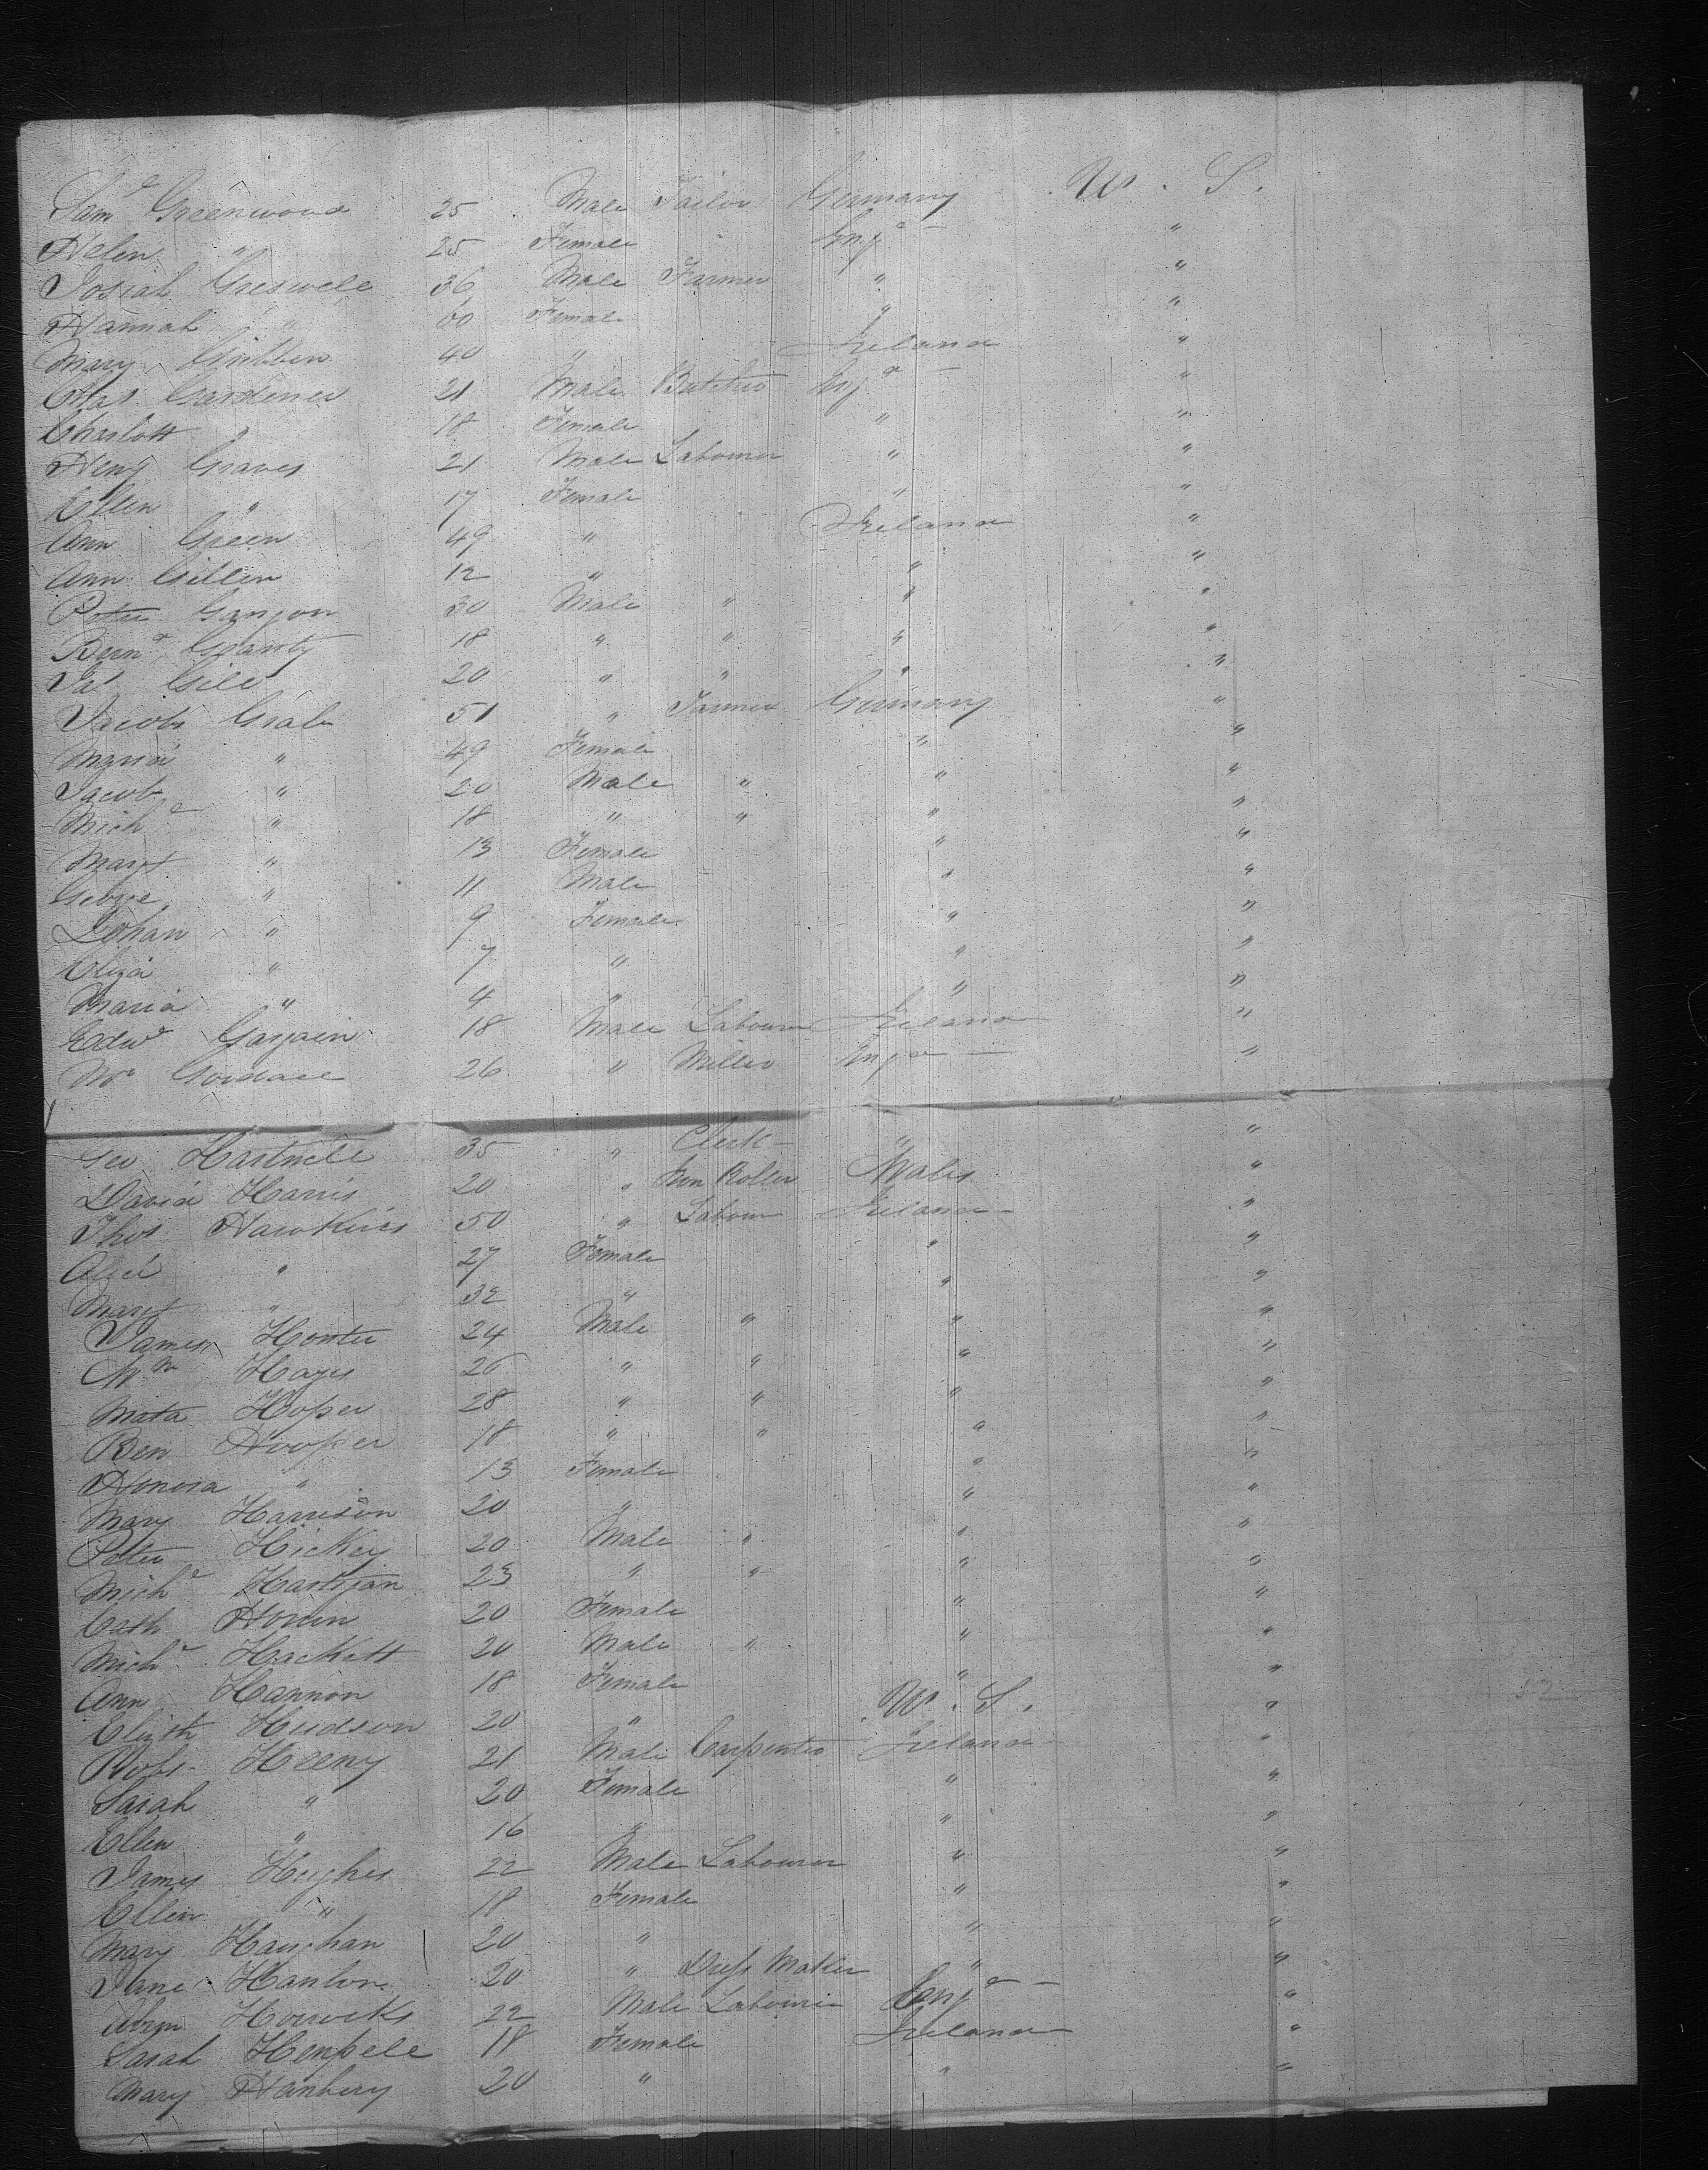 Saml Greenwood 25 Male Tailor Germany U. S.
Helen " 25 Female Engd - "
Josiah Greswell 36 Male Farmer " "
Hannah " 60 Female " "
Mary Gribben 40 " Ireland "
Chas Gardener 21 Male Butcher Engd - "
Charlott " 18 Female " "
Heny Graves 21 Male Labourer " "
Ellen " 17 Female " "
Ann Green 49 " Ireland "
Ann Gillen 12 " " "
Peter Ganjon 30 Male " " "
Bernd Garity 18 " " " "
Jas Gill 20 " " " "
Jacob Grab 51 " Farmer Germany "
Maria " 49 Female " "
Jacob " 20 Male " " "
Michl " 18 " " " "
Margt " 13 Female " "
George " 11 Male " "
Johan " 9 Female " "
Eliza " 7 " " "
Maria " 4 " " "
Edwd Gargain 18 Male Labourer Ireland "
Wm 26 " Miller Engd - "
Geo Hartnell 35 " Clerk - " "
David Harris 20 " Iron Roller Wales "
Thos Hawkins 50 " Labour Ireland - "
Alice " 27 Female " "
Margt " 32 " " "
James Honter 24 Male " " "
Wm Hayes 26 " " " "
Mata Hoper 28 " " " "
Ben Hooper 18 " " " "
Honora " 13 Female " "
Mary Harrison 20 " " "
Peter Hickey 20 Male " " "
Michl Hartigan 23 " " " "
Cath 20 Female " "
Michl Hackett 20 Male " " "
Ann Hannon 18 Female " "
Elizth Hudson 20 " U. S. "
Robt Heeny 21 Male Carpenter Ireland "
Sarah " 20 Female " "
Ellen " 16 " " "
James Hughes 22 Male Labourer " "
Ellen " 18 Female " "
Mary Haughan 20 " " "
Jane Hanlon 20 " Dress Maker " "
Abm Horrocks 22 Male Labourer Engd - "
Sarah Hempell 18 Female Ireland "
Mary Hanbery 20 " " "